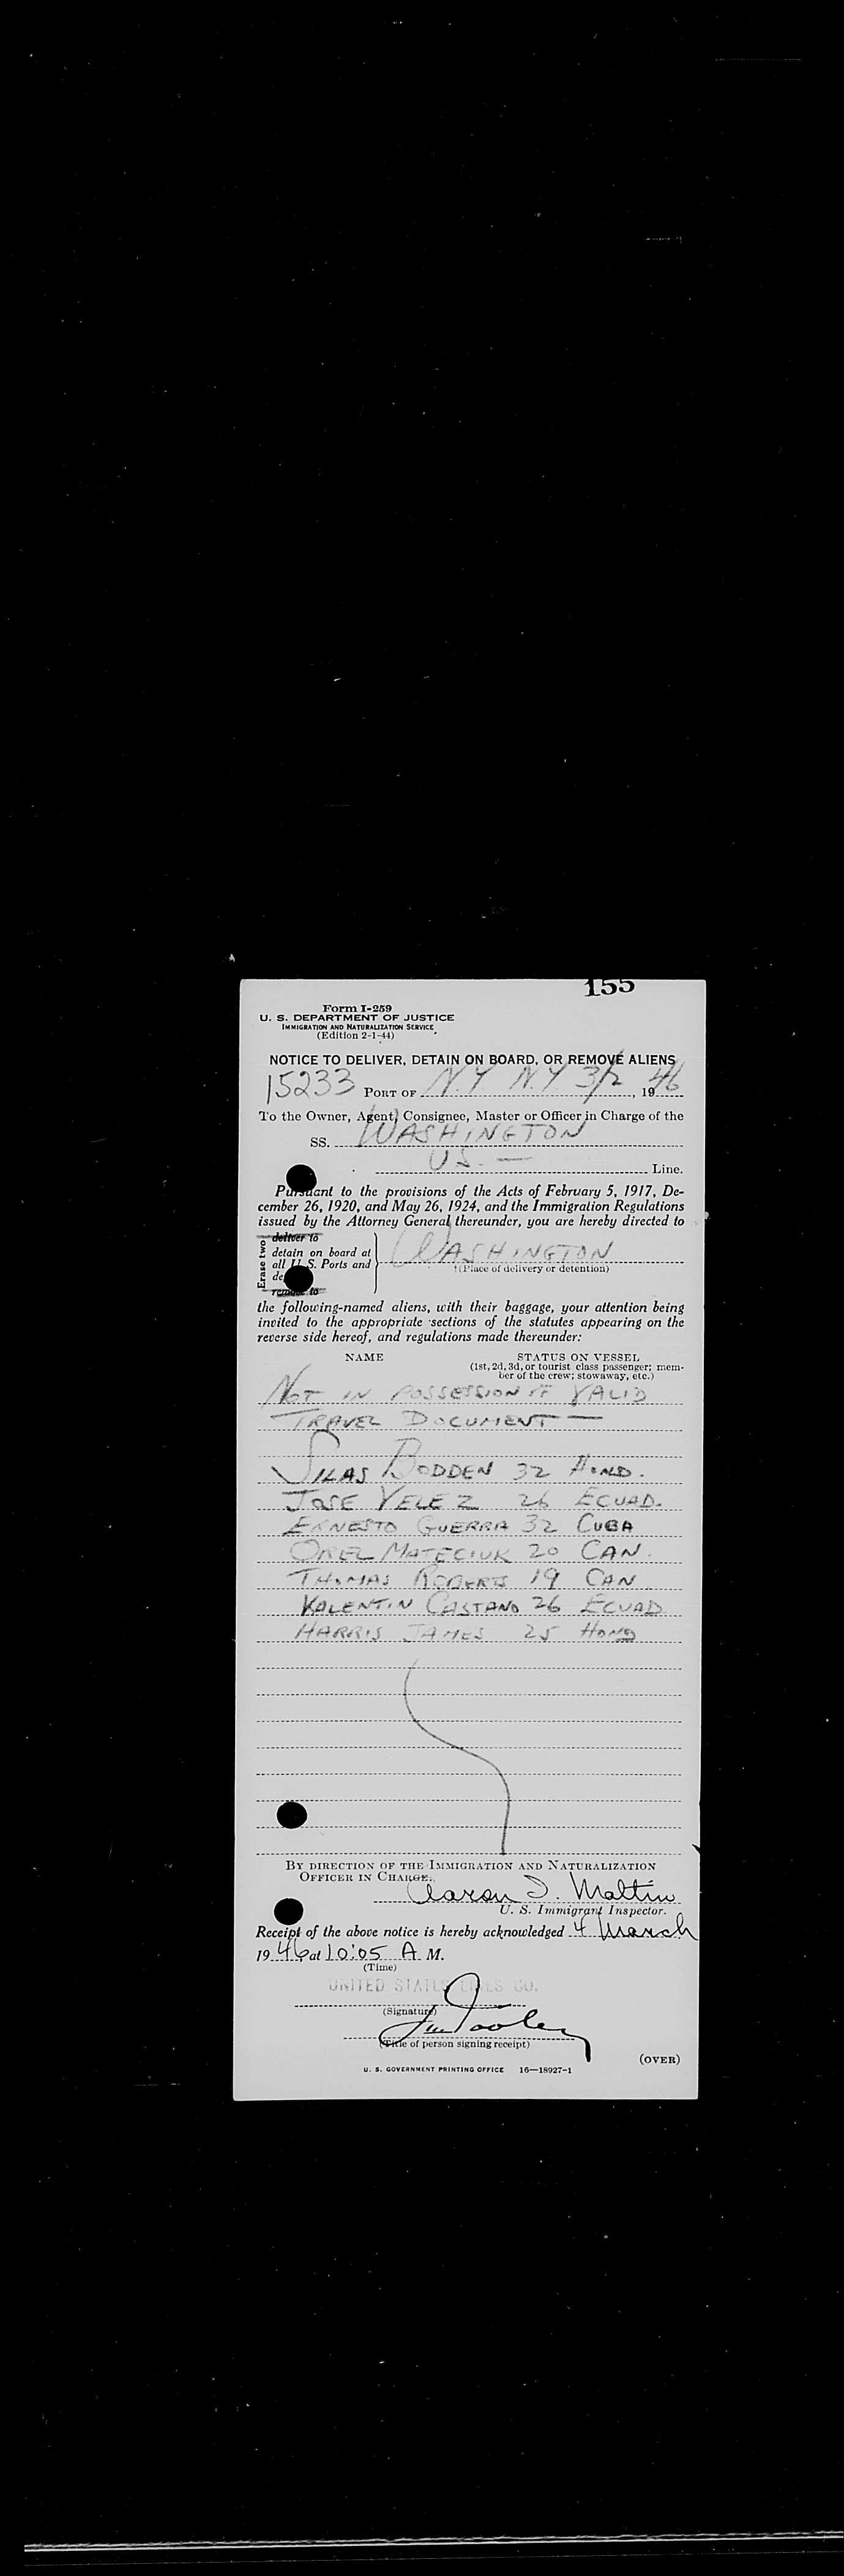 155
Form I-259
U. S. DEPARTMENT OF JUSTICE
IMMIGRATION AND NATURALIZATION SERVICE
(Edition 2-1-44)
NOTICE TO DELIVER, DETAIN ON BOARD, OR REMOVE ALIENS
15233 PORT OF N.Y N.Y 3/2, 19 46
To the Owner, Agent, Consignee, Master or Officer in Charge of the
SS. WASHINGTON
U S. — Line.
Pursuant to the provisions of the Acts of February 5, 1917, De-
cember 26, 1920, and May 26, 1924, and the Immigration Regulations
issued by the Attorney General thereunder, you are hereby directed to
Erase two
deliver to
detain on board at
all U. S. Ports and
remove to
WASHINGTON
†(Place of delivery or detention)
the following-named aliens, with their baggage, your attention being
invited to the appropriate sections of the statutes appearing on the
reverse side hereof, and regulations made thereunder:
NAME STATUS ON VESSEL
(1st, 2d, 3d, or tourist class passenger; mem-
ber of the crew; stowaway, etc.)
NOT IN POSSESSION OF VALID
TRAVEL DOCUMENT —
SILAS BODDEN 32 HOND.
JOSE VELEZ 26 ECUAD.
ERNESTO GUERRA 32 CUBA
OREL MATECIUK 20 CAN.
THOMAS ROBERTS 19 CAN
VALENTIN CASTANO 26 ECUAD
HARRIS JAMES 25 HOND
BY DIRECTION OF THE IMMIGRATION AND NATURALIZATION
OFFICER IN CHARGE:
Aaron I. Maltin
U. S. Immigrant Inspector.
Receipt of the above notice is hereby acknowledged 4 March
19 46 at 10:05 A. M.
(Time)
UNITED STATES LINES CO.
(Signature)
(Title of person signing receipt)
(OVER)
U. S. GOVERNMENT PRINTING OFFICE 16—18927-1